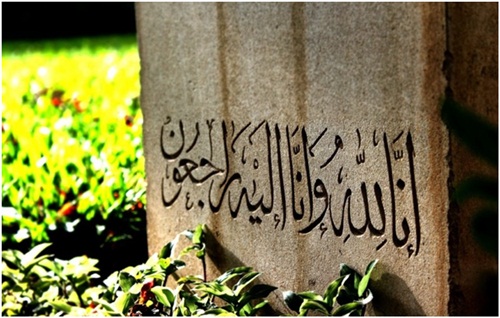 إنَّا لِلّٰهِ وُإنَّا إليْهِ راجعُونْ